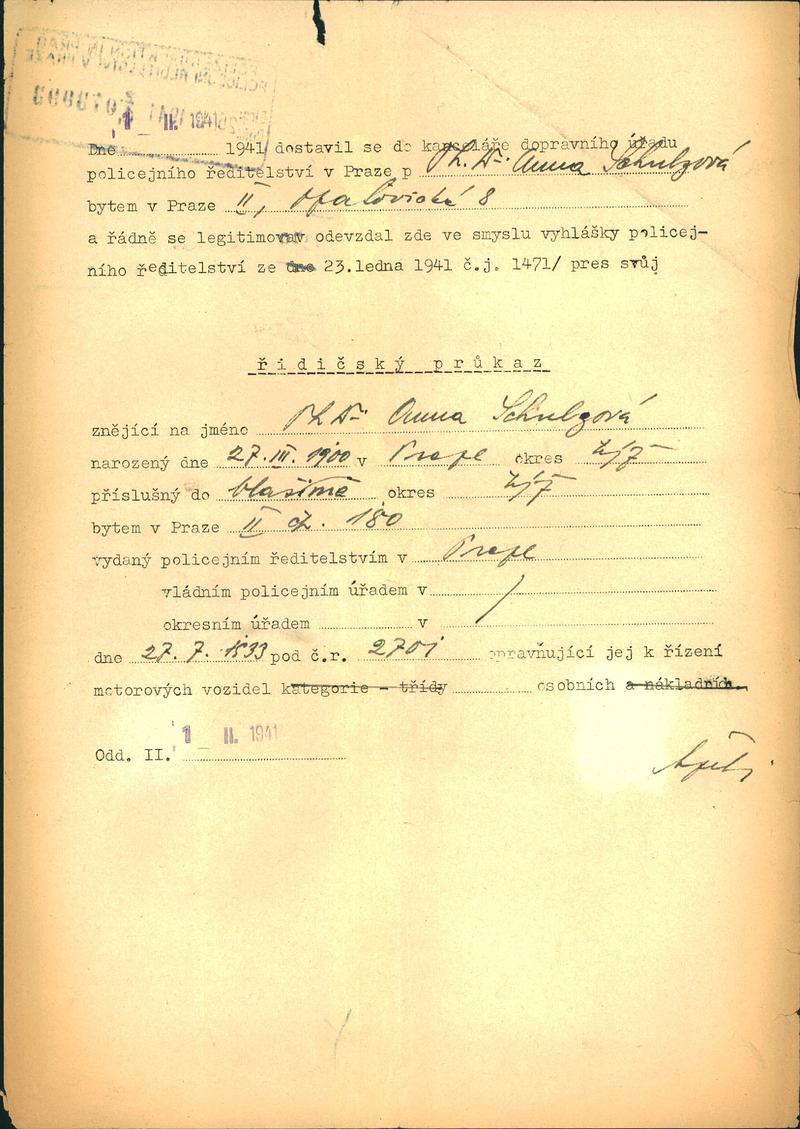 1 II. 1941
Dne 1941 dostavil se do kanceláře dopravního úřadu
policejního ředitelství v Praze p Ph. Dr. Anna Schulzová
bytem v Praze II, Opatovická 8
a řádně se legitimovav odevzdal zde ve smyslu vyhlášky policej-
ního ředitelství ze dne 23.ledna 1941 č.j. 1471/ pres svůj
řidičský průkaz
znějící na jméno Ph Dr Anna Schulzová
narozený dne 27. III. 1900 v Praze okres
příslušný do okres
bytem v Praze II čp. 180
vydaný policejním ředitelstvím v Praze
vládním policejním úřadem v
okresním úřadem v
dne 27. 7. 1933 pod č.r. 2701 opravňující jej k řízení
motorových vozidel kategorie - třídy osobních a nákladních.
1 II. 1941
Odd. II.